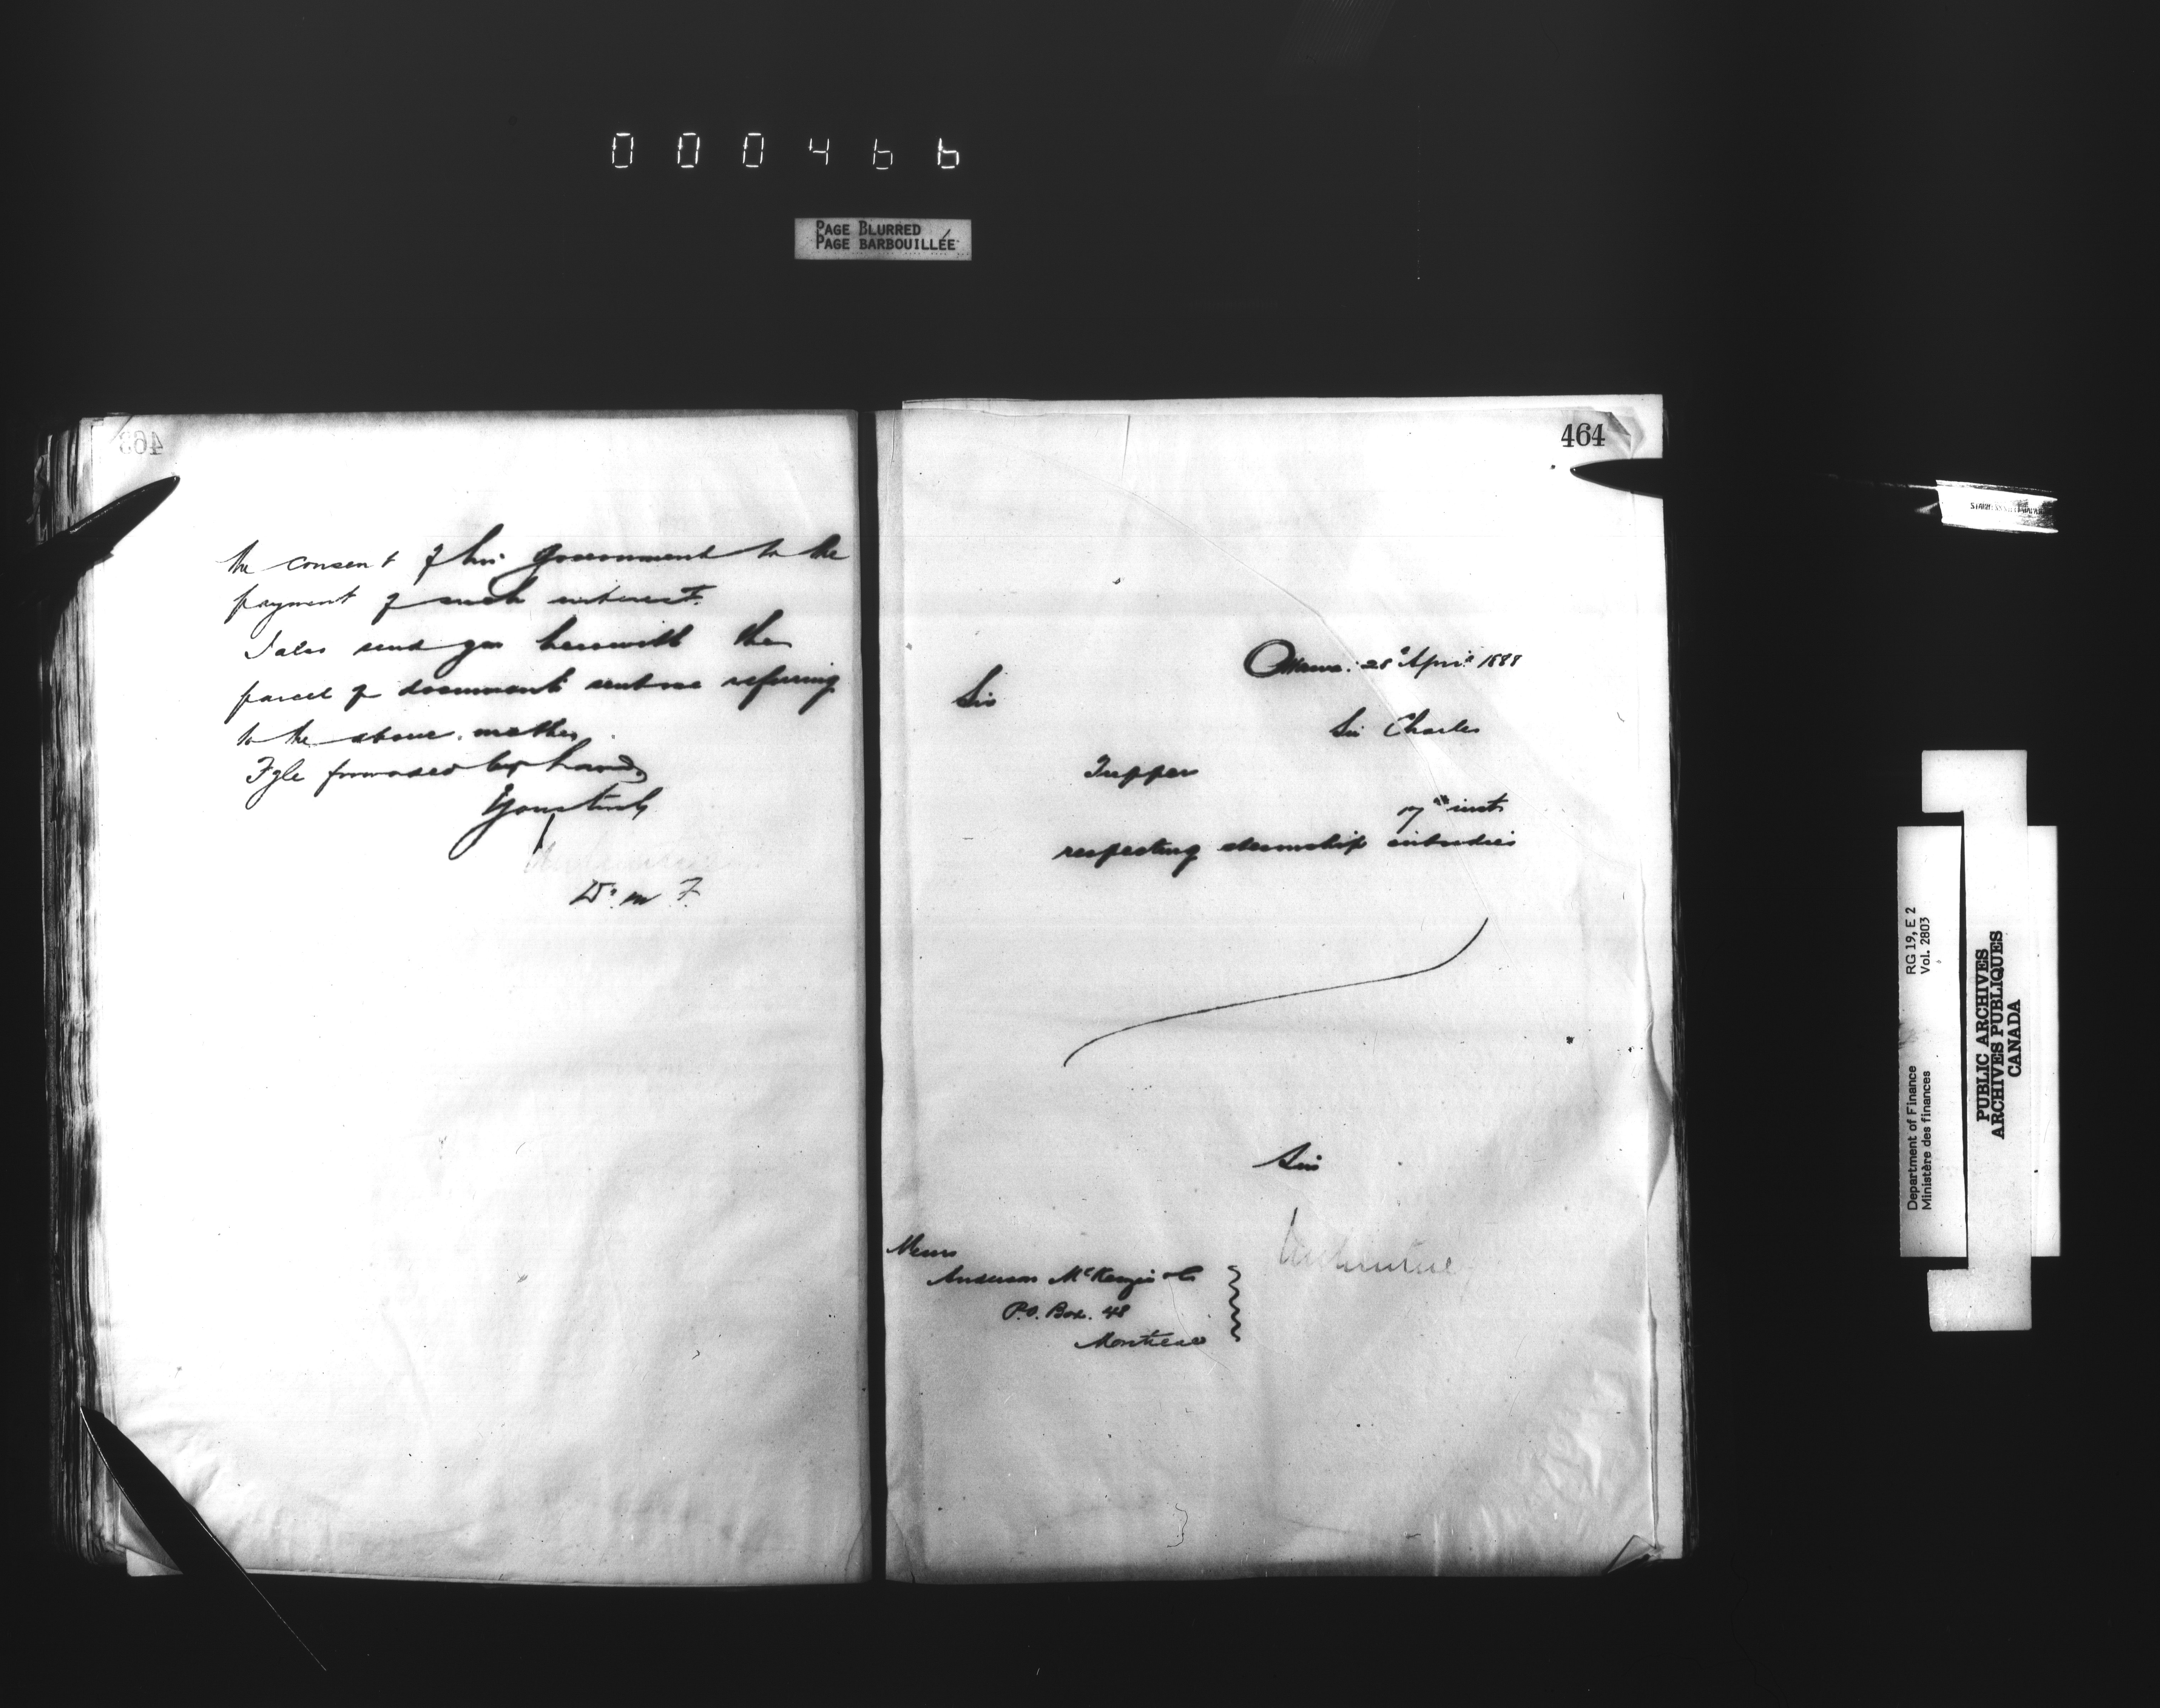 000466
PAGE BLURRED
PAGE BARBOUILLÉE
463
the consent of his Government to the
payment of such interest.
I also send you herewith the
parcel of documents sent me referring
to the above matter.
forwarded by hand
Yours truly
D. M F.
464
Ottawa. 28 April 1888
Sir
Sir Charles
Tupper
17th inst
respecting steamship subsidies
Sir
Messrs
Anderson McKenzie & Co
P.O. Box. 48
Montreal
RG 19, E 2
Vol. 2803
Department of Finance
Ministère des finances
PUBLIC ARCHIVES
ARCHIVES PUBLIQUES
CANADA